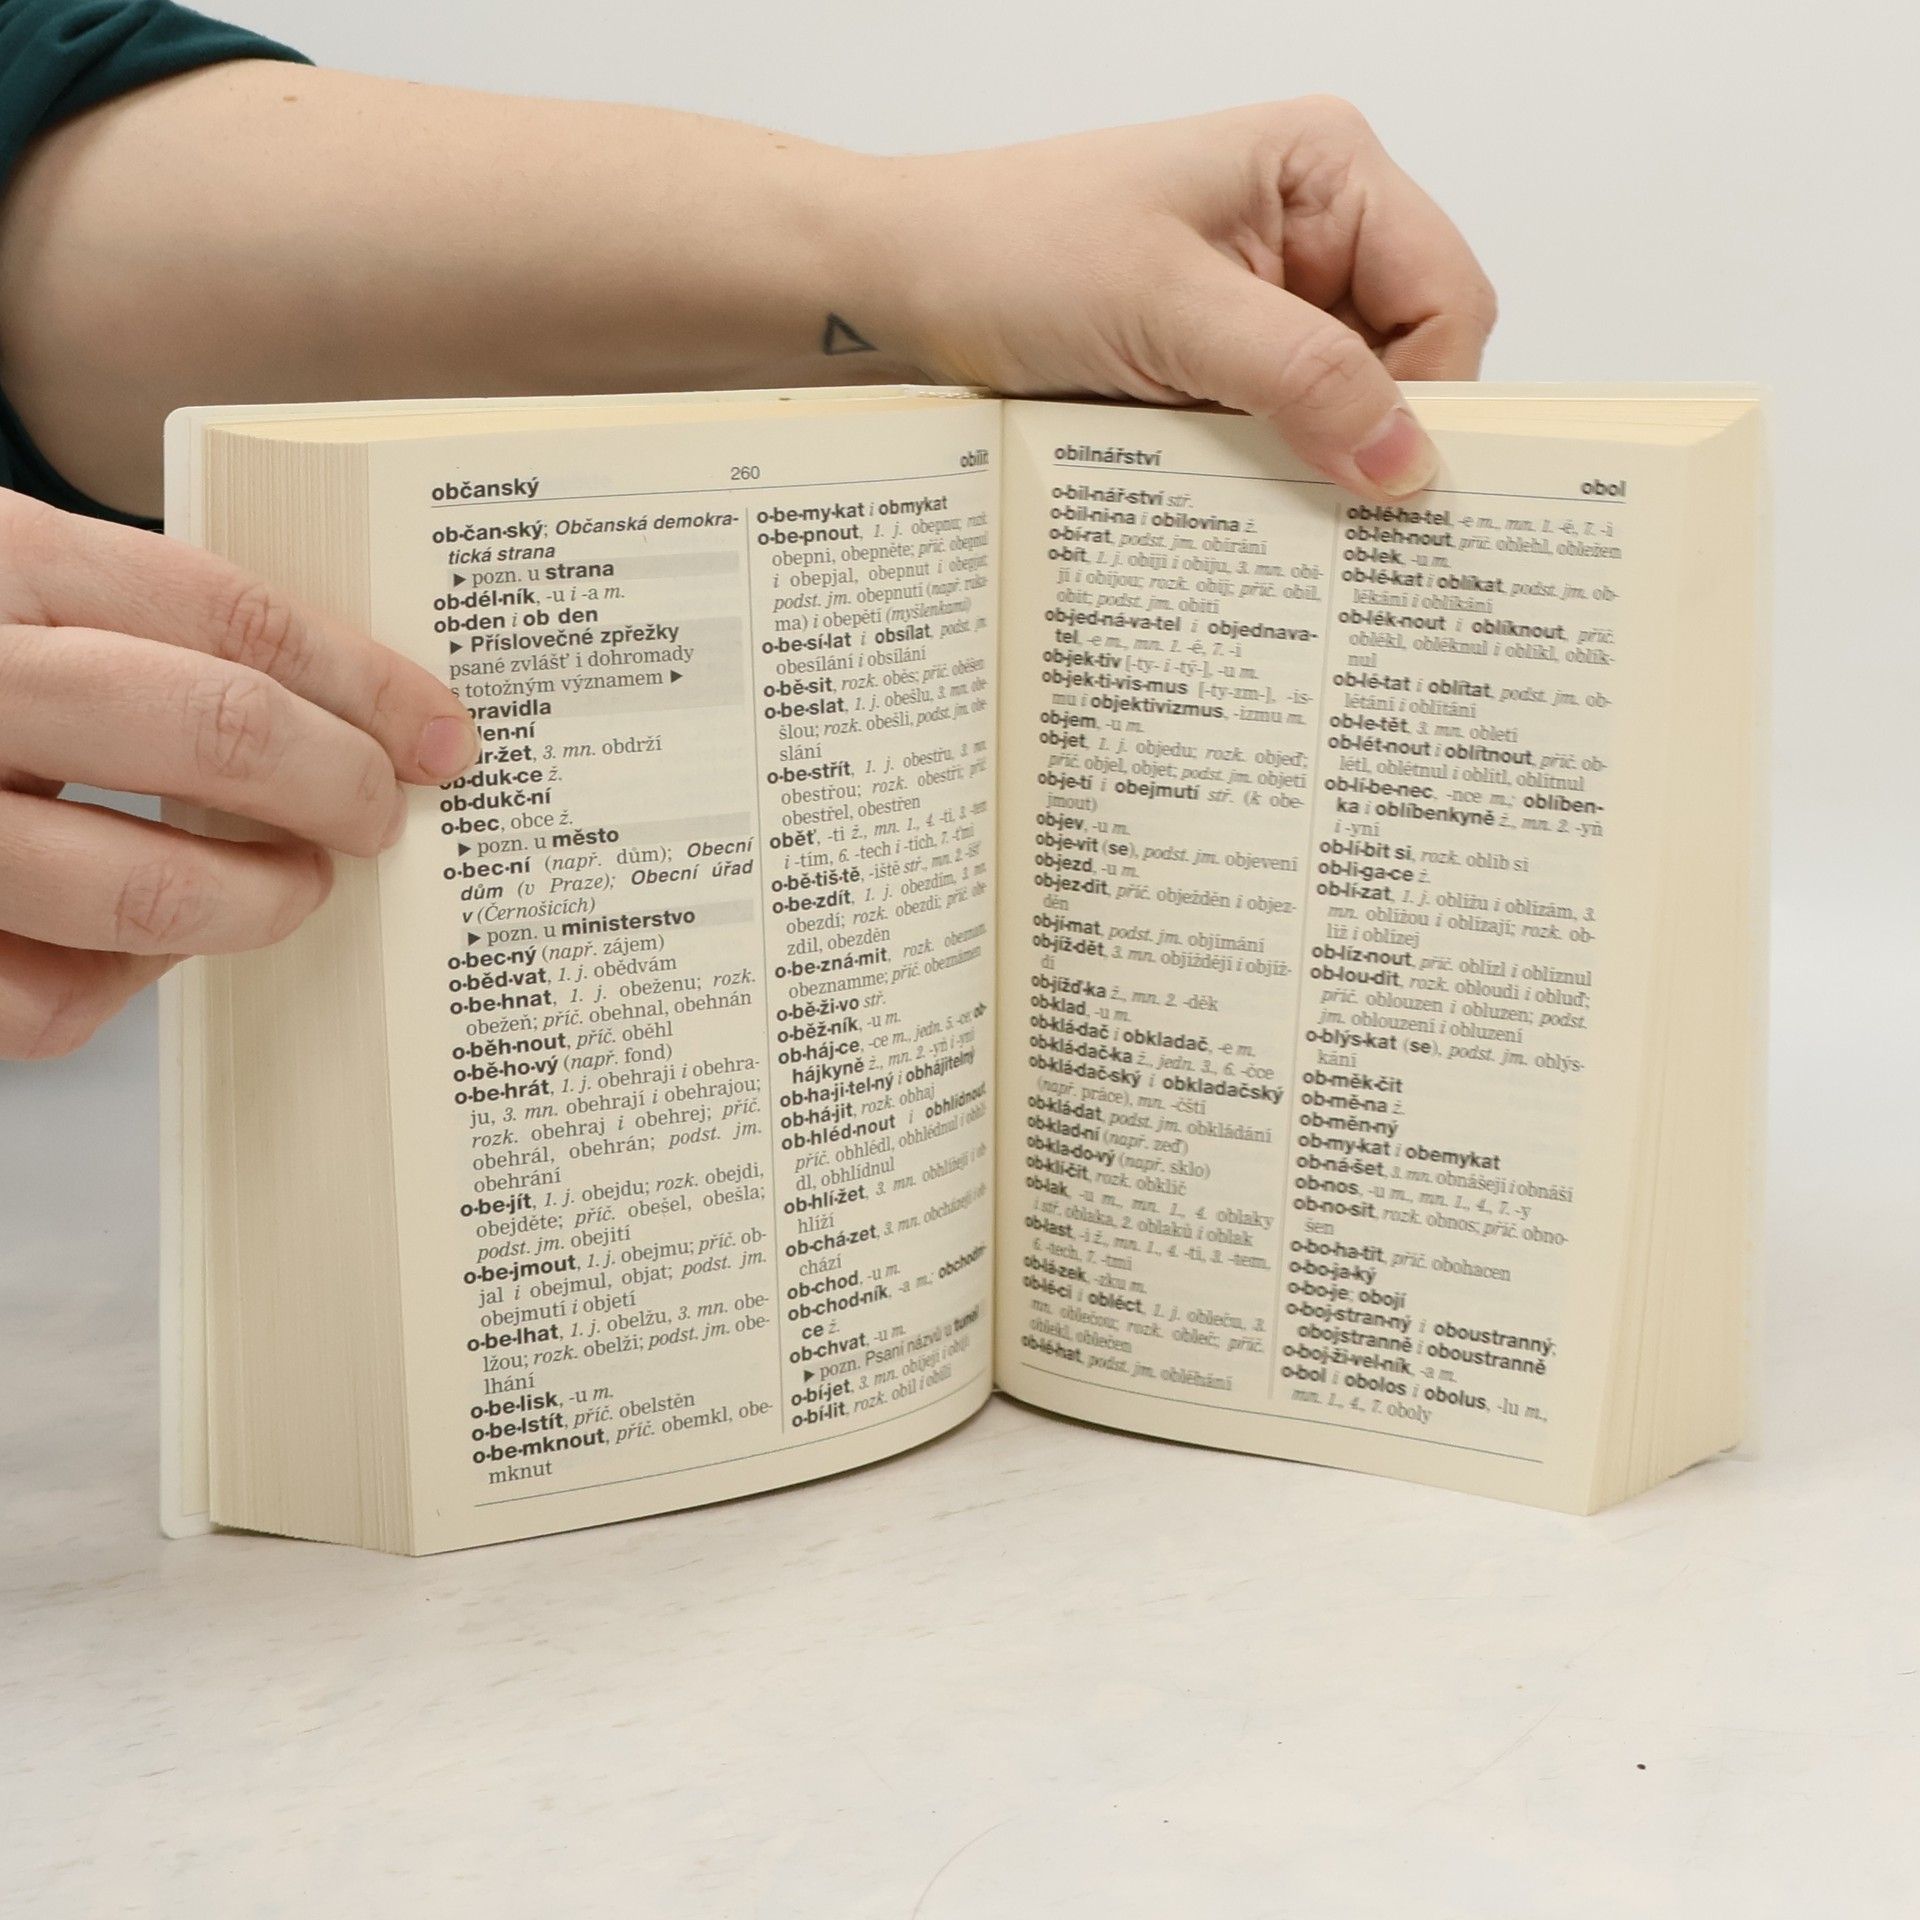 občanský
260
ob·čan·ský; Občanská demokra-
tická strana
▶ pozn. u strana
ob·dél·ník, -u i -a m.
ob·den i ob den
▶ Příslovečné zpřežky
psané zvlášť i dohromady
s totožným významem ▶
pravidla
3. mn. obdrží
ob·duk·ce ž.
ob·dukč·ní
o·bec, obce ž.
▶ pozn. u město
o·bec·ní (např. dům); Obecní
dům (v Praze); Obecní úřad
v (Černošicích)
▶ pozn. u ministerstvo
o·bec·ný (např. zájem)
o·běd·vat, 1. j. obědvám
o·be·hnat, 1. j. obeženu; rozk.
obežeň; příč. obehnal, obehnán
o·běh·nout, příč. oběhl
o·bě·ho·vý (např. fond)
o·be·hrát, 1. j. obehraji i obehra-
ju, 3. mn. obehrají i obehrajou;
rozk. obehraj i obehrej; příč.
obehrál, obehrán; podst. jm.
obehrání
o·be·jít, 1. j. obejdu; rozk. obejdi,
obejděte; příč. obešel, obešla;
podst. jm. obejití
o·be·jmout, 1. j. obejmu; příč. ob-
jal i obejmul, objat; podst. jm.
obejmutí i objetí
o·be·lhat, 1. j. obelžu, 3. mn. obe-
lžou; rozk. obelži; podst. jm. obe-
lhání
o·be·lisk, -u m.
o·be·lstít, příč. obelstěn
o·be·mknout, příč. obemkl, obe-
mknut
o·be·my·kat i obmykat
o·be·pnout, 1. j. obepnu; rozk.
obepni, obepněte; příč. obepnul
i obepjal, obepnut i obepjat;
podst. jm. obepnutí (např. ruka-
ma) i obepětí (myšlenkami)
o·be·sí·lat i obsílat, podst. jm.
obesílání i obsílání
o·bě·sit, rozk. oběs; příč. oběšen
o·be·slat, 1. j. obešlu, 3. mn. obe-
šlou; rozk. obešli, podst. jm. obe-
slání
o·be·střít, 1. j. obestřu, 3. mn.
obestřou; rozk. obestři; příč.
obestřel, obestřen
oběť, -ti ž., mn. 1., 4. -ti, 3. -tem
i -tím, 6. -tech i -tích, 7. -ťmi
o·bě·tiš·tě, -iště stř., mn. 2. -išť
o·be·zdít, 1. j. obezdím, 3. mn.
obezdí; rozk. obezdi; příč. obe-
zdil, obezděn
o·be·zná·mit, rozk. obeznam,
obeznamme; příč. obeznámen
o·bě·ži·vo stř.
o·běž·ník, -u m.
ob·háj·ce, -ce m., jedn. 5. -ce, ob-
hájkyně ž., mn. 2. -yň i -yní
ob·ha·ji·tel·ný i obhájitelný
ob·há·jit, rozk. obhaj
ob·hléd·nout i obhlídnout,
příč. obhlédl, obhlédnul i obhlí-
dl, obhlídnul
ob·hlí·žet, 3. mn. obhlížejí i ob-
hlíží
ob·chá·zet, 3. mn. obcházejí i ob-
chází
ob·chod, -u m.
ob·chod·ník, -a m.; obchodni-
ce ž.
ob·chvat, -u m.
▶ pozn. Psaní názvů u tunel
o·bí·jet, 3. mn. obíjejí i obíjí
o·bí·lit, rozk. obil i obíli
obilnářství
obol
o·bil·nář·ství stř.
o·bil·ni·na i obilovina ž.
o·bí·rat, podst. jm. obírání
o·bít, 1. j. obiji i obiju, 3. mn. obi-
jí i obijou; rozk. obij; příč. obil,
obit; podst. jm. obití
ob·jed·ná·va·tel i objednava-
tel, -e m., mn. 1. -é, 7. -i
ob·jek·tiv [-ty- i -tý-], -u m.
ob·jek·ti·vis·mus [-ty-zm-], -is-
mu i objektivizmus, -izmu m.
ob·jem, -u m.
ob·jet, 1. j. objedu; rozk. objeď;
příč. objel, objet; podst. jm. objetí
ob·je·tí i obejmutí stř. (k obe-
jmout)
ob·jev, -u m.
ob·je·vit (se), podst. jm. objevení
ob·jezd, -u m.
ob·jez·dit, příč. objezděn i objez-
děn
ob·jí·mat, podst. jm. objímání
ob·jíž·dět, 3. mn. objíždějí i objíž-
dí
ob·jížď·ka ž., mn. 2. -děk
ob·klad, -u m.
ob·klá·dač i obkladač, -e m.
ob·klá·dač·ka ž., jedn. 3., 6. -čce
ob·klá·dač·ský i obkladačský
(např. práce), mn. -čští
ob·klá·dat, podst. jm. obkládání
ob·klad·ní (např. zeď)
ob·kla·do·vý (např. sklo)
ob·klí·čit, rozk. obklič
ob·lak, -u m., mn. 1., 4. oblaky
i stř. oblaka, 2. oblaků i oblak
ob·last, -i ž., mn. 1., 4. -ti, 3. -tem,
6. -tech, 7. -tmi
ob·lá·zek, -zku m.
ob·lé·ci i obléct, 1. j. obleču, 3.
mn. oblečou; rozk. obleč; příč.
oblekl, oblečen
ob·lé·hat, podst. jm. obléhání
ob·lé·ha·tel, -e m., mn. 1. -é, 7. -i
ob·leh·nout, příč. oblehl, obležen
ob·lek, -u m.
ob·lé·kat i oblíkat, podst. jm. ob-
lékání i oblíkání
ob·lék·nout i oblíknout, příč.
oblékl, obléknul i oblíkl, oblík-
nul
ob·lé·tat i oblítat, podst. jm. ob-
létání i oblítání
ob·le·tět, 3. mn. obletí
ob·lét·nout i oblítnout, příč. ob-
létl, oblétnul i oblítl, oblítnul
ob·lí·be·nec, -nce m.; oblíben-
ka i oblíbenkyně ž., mn. 2. -yň
i -yní
ob·lí·bit si, rozk. oblib si
ob·li·ga·ce ž.
ob·lí·zat, 1. j. oblížu i oblízám, 3.
mn. oblížou i oblízají; rozk. ob-
liž i oblízej
ob·líz·nout, příč. oblízl i obliznul
ob·lou·dit, rozk. obloudi i obluď;
příč. oblouzen i obluzen; podst.
jm. oblouzení i obluzení
o·blýs·kat (se), podst. jm. oblýs-
kání
ob·měk·čit
ob·mě·na ž.
ob·měn·ný
ob·my·kat i obemykat
ob·ná·šet, 3. mn. obnášejí i obnáší
ob·nos, -u m., mn. 1., 4., 7. -y
ob·no·sit, rozk. obnos; příč. obno-
šen
o·bo·ha·tit, příč. obohacen
o·bo·ja·ký
o·bo·je; obojí
o·boj·stran·ný i oboustranný;
obojstranně i oboustranně
o·boj·ži·vel·ník, -a m.
o·bol i obolos i obolus, -lu m.,
mn. 1., 4., 7. oboly